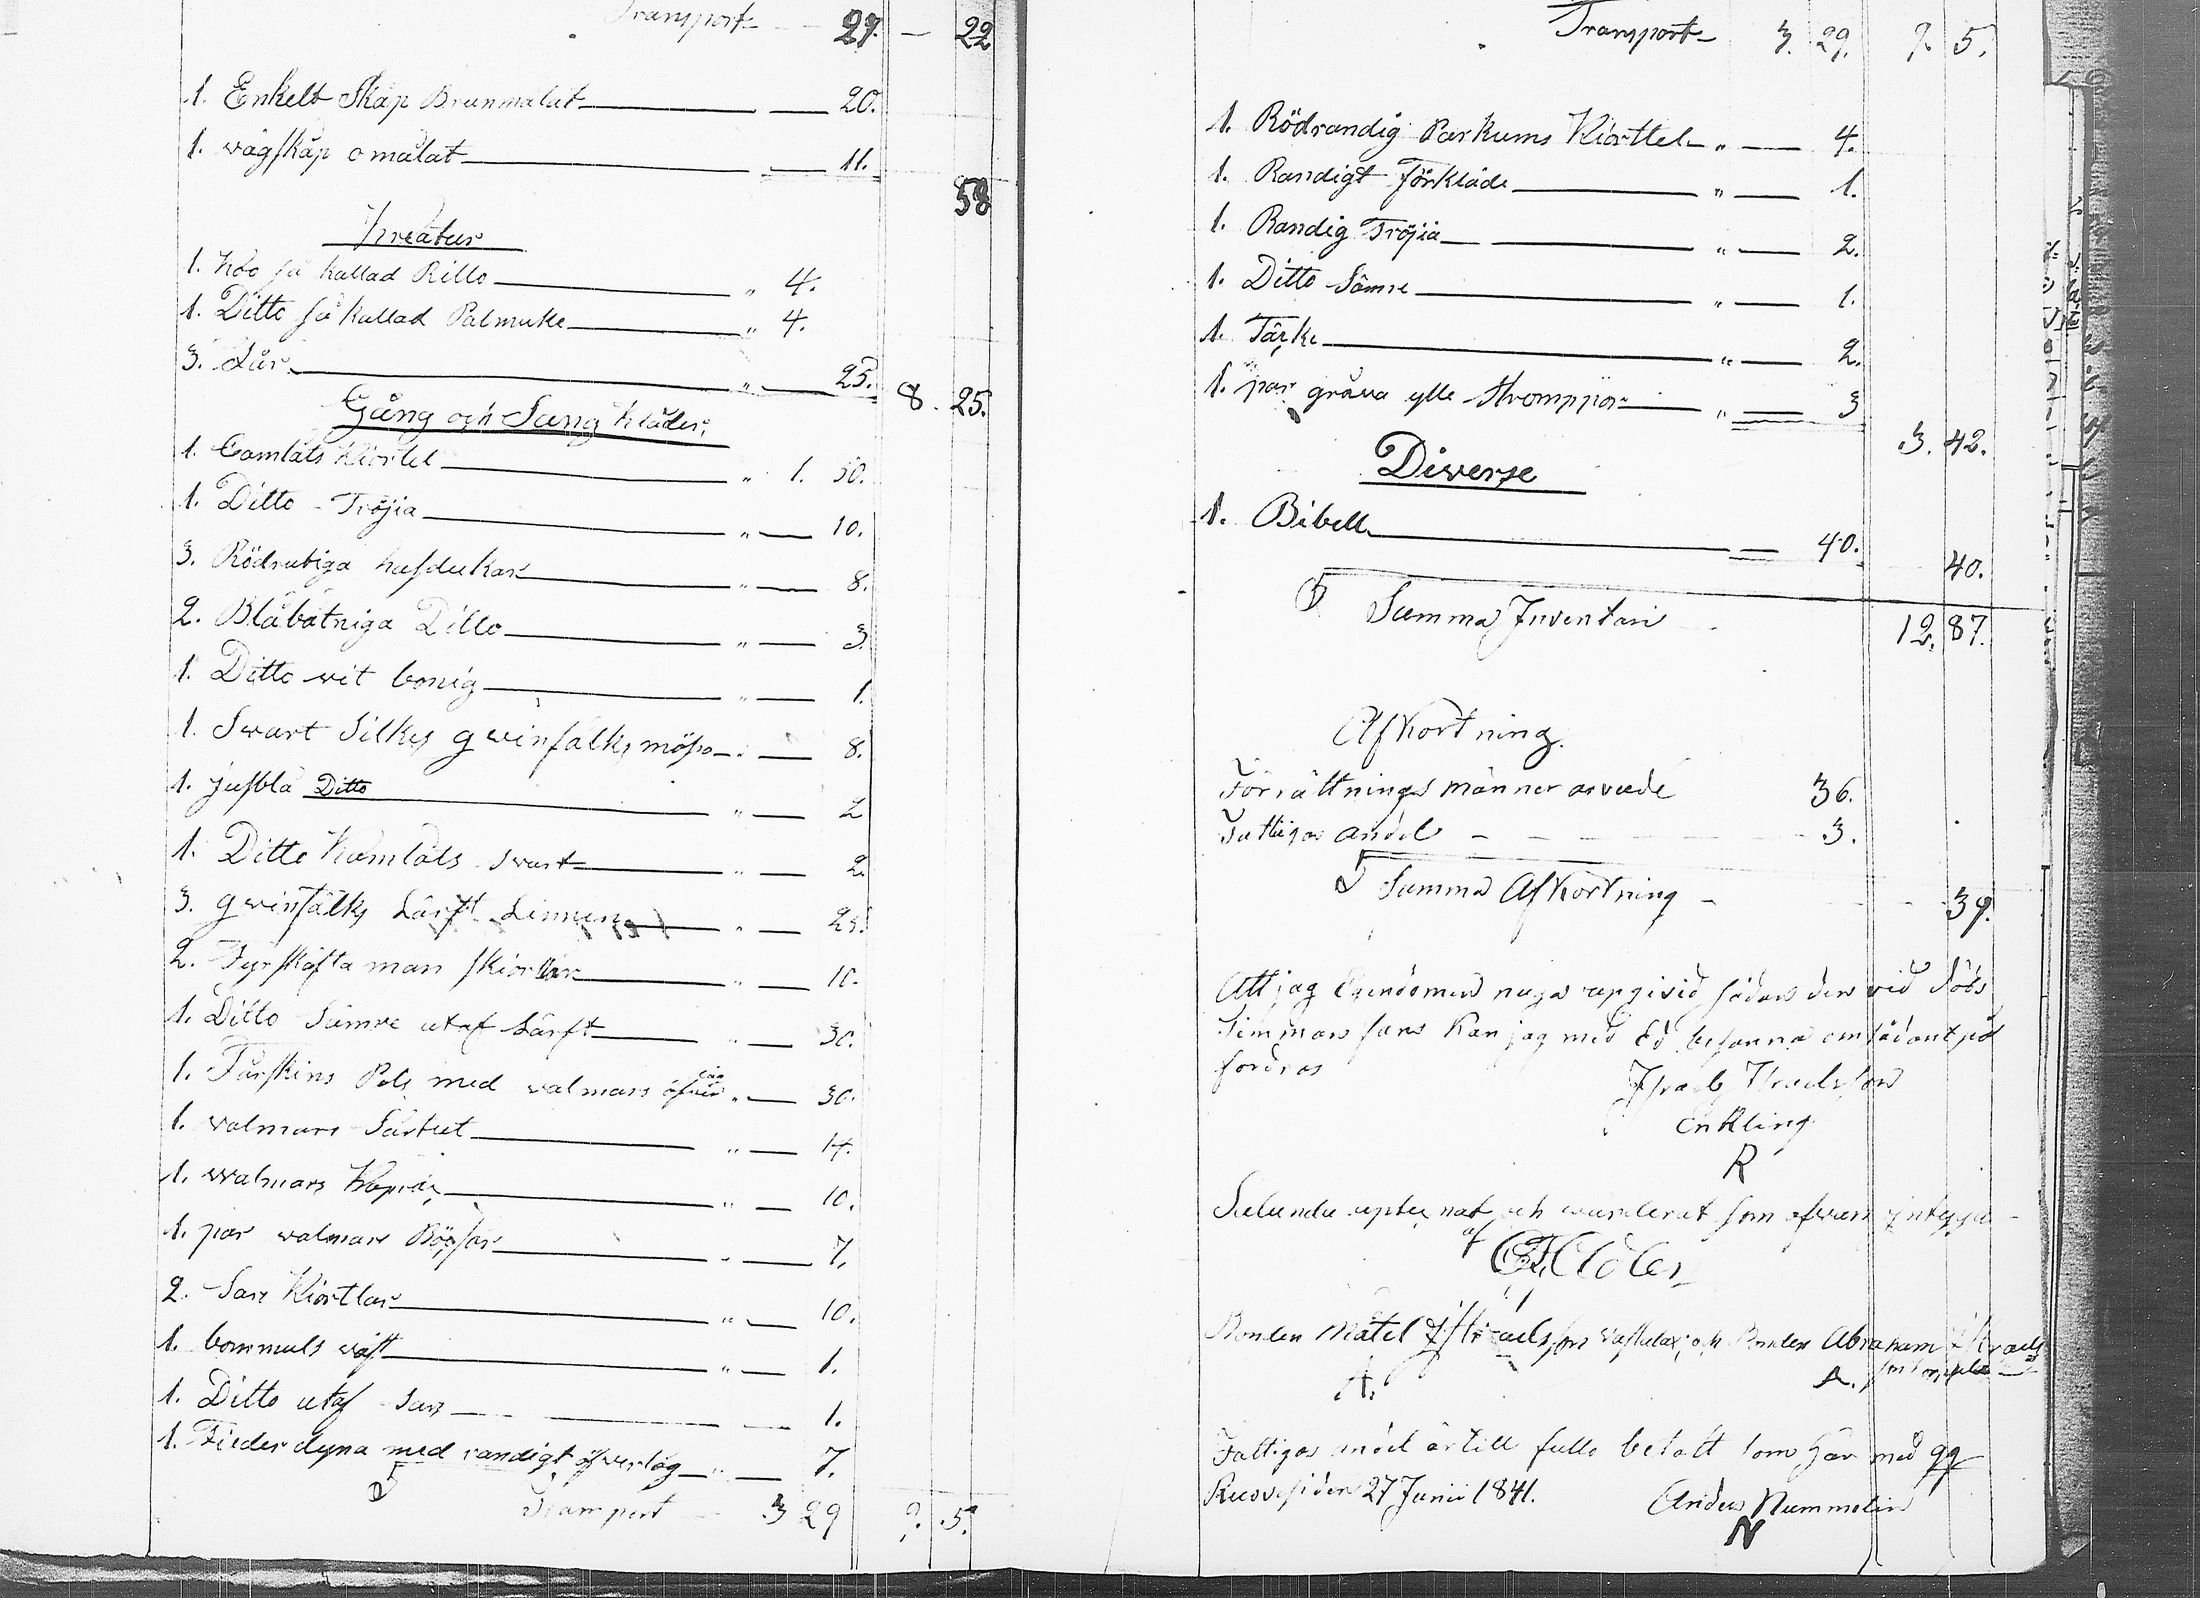 Transport 27. — 22
1. Enkelt Skåp Brunmålat — 20.
1. vägskåp omålat — 11.
58
Kreatur
1. Koo så kallad Rillo „ 4.
1. Ditto så kallad Palmuke „ 4.
3. Får „ — 25.
8. 25.
Gång och Säng Kläder,
1. Camlåts Kiortel „ 1. 30.
1. Ditto Tröjia „ — 10.
3. Rödrutiga husdukar „ — 8.
2. Blåbåtniga Ditto „ — 3.
1. Ditto vit bonig „ — 1.
1. Svart Silkes qvinfålks mössa „ — 8.
1. jusblå Ditto „ — 2
1. Ditto Kamlåts svart „ — 2.
3. qvinfålks Lärft Linnen „ — 25.
2. Fyrskäfta man skiortor „ — 10.
1. Ditto Sämre utaf Lärft „ — 30.
1. Fårskins Pels med valmars „ — 30.
1. valmars Sürtut „ — 14.
1. walmars „ — 10.
1. par valmars Böxsor „ — 7.
2. Sars Kiortlar „ — 10.
1. bommuls väst „ — 1.
1. Ditto utaf Sars — 1.
1. Fieder dyna med randigt öfverlag „ — 7.
Transport 3 29 9. 5.
Transport 3. 29. 9. 5.
1. Rödrandig Parkums Kiorttel „ — 4.
1. Randigt förkläde „ — 1.
1. Randig Tröjia „ — 2.
1. Ditto Sämre „ — 1.
1. Täcke „ — 2.
1. par gråva ylle strompor „ — 3
3. 42.
Diverse
1. Bibell — 40.
40.
Summa Inventari 12. 87.
Afkortning.
Förrättnings männer arvude 36.
Fattigas andel 3.
Summa Afkortning 39.
Att jag Egendomen noga upgivid sådan den vid döds
timman fans kan jag med Ed besanna om sådant på
fordras
Israel Israelsson
Enkling
R
Salunda upteknat och värderat som ofvan intygar
af
Bonden Matel Israelsson och Bonden Abraham Israels
A. A. son
Fattigas andel är till fullo betalt som här med qq
den 27 Junii 1841. Anders Nummelin
N